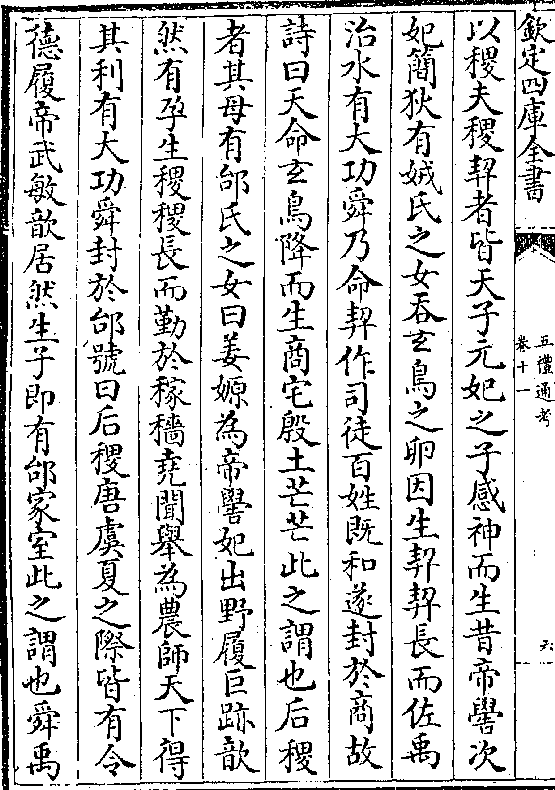 欽定四庫全書
五禮通考
卷十一
六
以稷夫稷契者皆天子元妃之子感神而生昔帝嚳次
妃簡狄有娀氏之女吞玄鳥之卵因生契契長而佐禹
治水有大功舜乃命契作司徒百姓既和遂封於商故
詩曰天命玄鳥降而生商宅殷土芒芒此之謂也后稷
者其母有邰氏之女曰姜嫄為帝嚳妃出野履巨跡歆
然有孕生稷稷長而勤於稼穡堯聞舉為農師天下得
其利有大功舜封於邰號曰后稷唐虞夏之際皆有令
德履帝武敏歆居然生子即有邰家室此之謂也舜禹